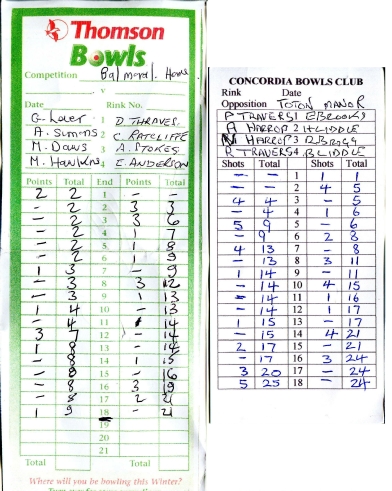 Thomson
Bowls
Competition Balmoral. Home
v
Date Rink No.
1 D THRAVES
A. Simons 2 C. RATCLIFFE
M. Daws 3 A. STOKES
M. Hawkins 4 E. ANDERSON
Points Total End Points Total
2 2 1 - -
- 2 2 3 3
- 2 3 3 6
- 2 4 1 7
- 2 5 1 8
- 2 6 1 9
1 3 7 - 9
- 3 8 3 12
- 3 9 1 13
1 4 10 - 13
- 4 11 1 14
3 7 12 - 14
1 8 13 - 14
- 8 14 1 15
- 8 15 - 16
- 8 16 3 19
- 8 17 2 21
1 9 18 - 21
19
20
21
Total Total
Where will you be bowling this Winter?
CONCORDIA BOWLS CLUB
Rink Date
Opposition TOTON MANOR
P TRAVERS 1 E BROOKS
A HARROP 2 H LIDDLE
N HARROP 3 R BROGG
R TRAVERS 4 B LIDDLE
Shots Total Shots Total
- - 1 1 1
- - 2 4 5
4 4 3 - 5
- 4 4 1 6
5 9 5 - 6
- 9 6 2 8
4 13 7 - 8
- 13 8 3 11
1 14 9 - 11
- 14 10 4 15
- 14 11 1 16
- 14 12 1 17
1 15 13 - 17
- 15 14 4 21
2 17 15 - 21
- 17 16 3 24
3 20 17 - 24
5 25 18 - 24